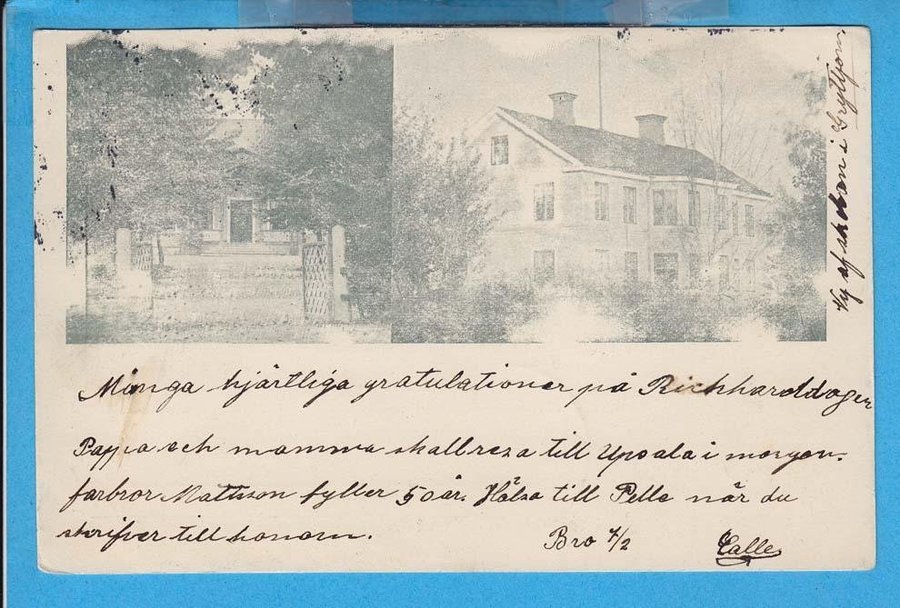 Vy af skolan i Gryttjom.
Många hjärtliga gratulationer på Richharddagen
Pappa och mamma skall resa till Upsala i morgon.
farbror Mattsson fyller 50 år. Hälsa till Pelle när du
skrifver till honom. Bro 4/2 Calle